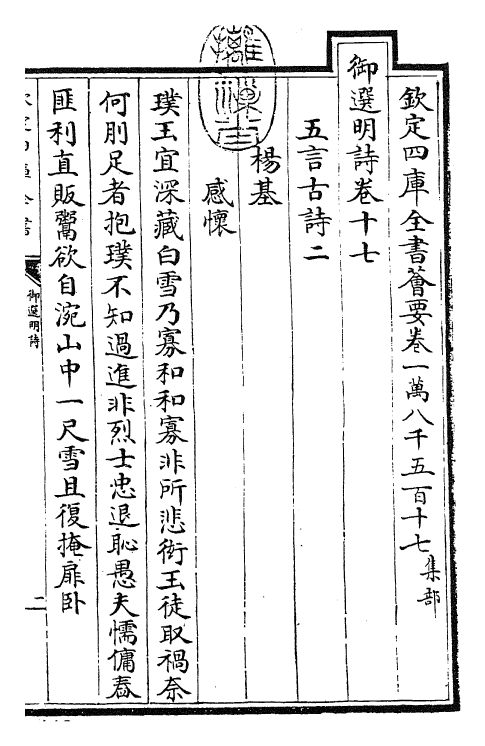 欽定四庫全書薈要卷一萬八千五百十七集部
御選明詩卷十七
五言古詩二
楊基
感懷
璞玉宜深藏白雪乃寡和和寡非所悲衒玉徒取禍奈
何刖足者抱璞不知過進非烈士忠退恥愚夫懦傭舂
匪利直販鬻欲自涴山中一尺雪且復掩扉臥
御選明詩